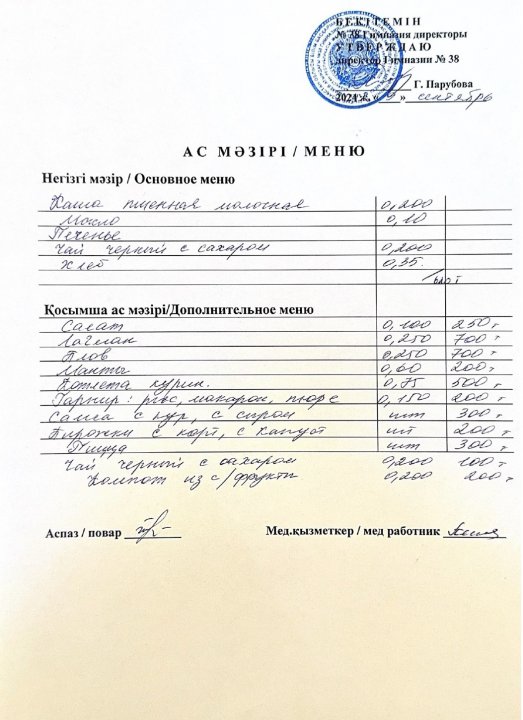 БЕКІТЕМІН
№ 38 Гимназия директоры
УТВЕРЖДАЮ
директор Гимназии № 38
Г. Парубова
2024 ж. « » сентябрь
АС МӘЗІРІ / МЕНЮ
Негізгі мәзір / Основное меню
Каша пшенная молочная 0,200
Масло 0,10
Печенье
Чай черный с сахаром 0,200
Хлеб 0,35.
Қосымша ас мәзірі/Дополнительное меню
Салат 0,100 250 т
Лагман 0,250 700 т
Плов 0,250 700 т
Манты 0,60 200 т
Котлета курин. 0,75 500 т
Гарнир: рис, макарон, пюре 0,150 200 т
Самса с кур, с сыром шт 300 т
Пирожки с карт, с капуст шт 200 т
Пицца шт 300 т
Чай черный с сахаром 0,200 100 т
Компот из с/фрукты 0,200 200 т
Аспаз / повар Мед.қызметкер / мед работник